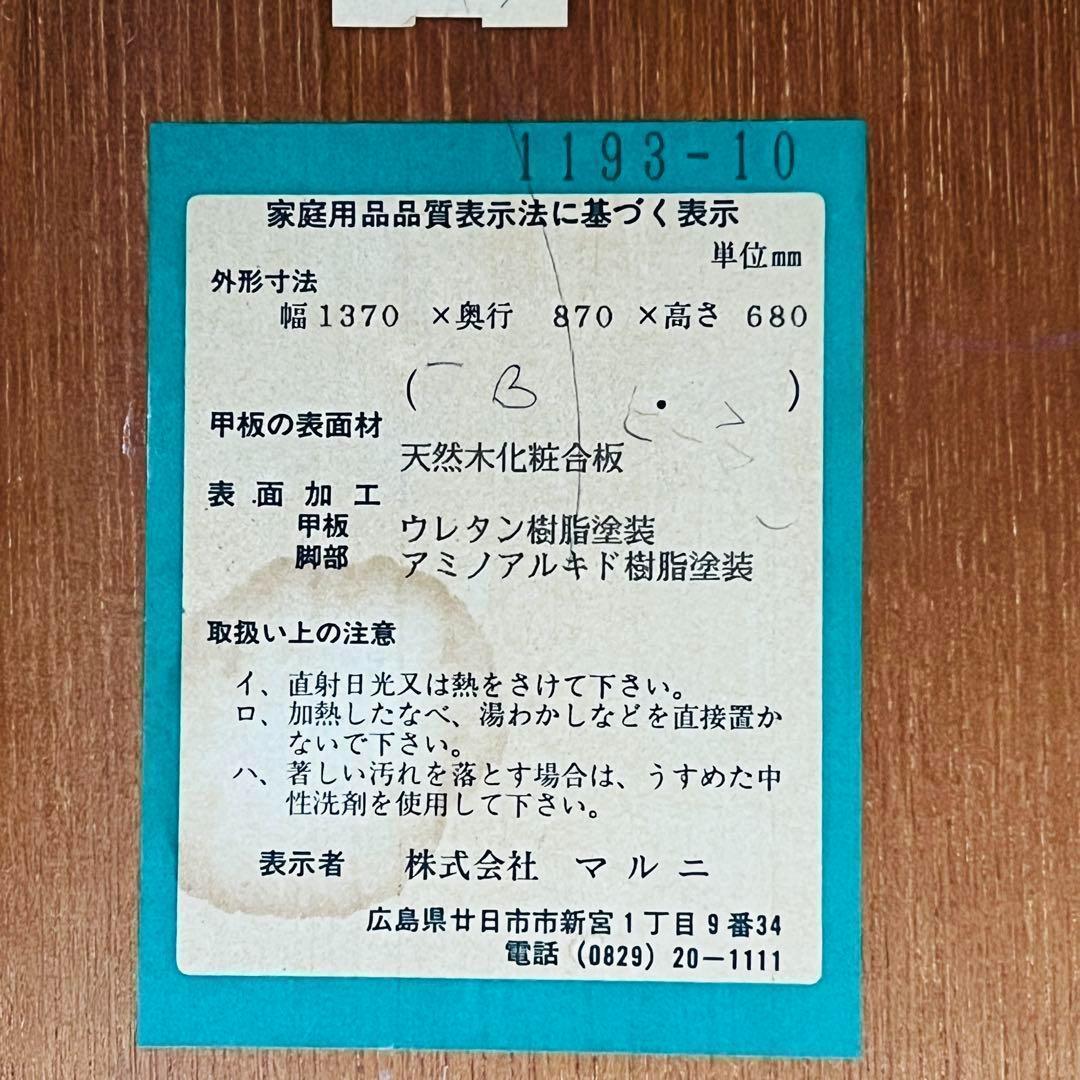 1193-10
家庭用品品質表示法に基づく表示
単位mm
外形寸法
幅1370 ×奥行 870 ×高さ 680
( B ・ )
甲板の表面材
天然木化粧合板
表面加工
甲板 ウレタン樹脂塗装
脚部 アミノアルキド樹脂塗装
取扱い上の注意
イ、直射日光又は熱をさけて下さい。
ロ、加熱したなべ、湯わかしなどを直接置か
ないで下さい。
ハ、著しい汚れを落とす場合は、うすめた中
性洗剤を使用して下さい。
表示者 株式会社 マルニ
広島県廿日市市新宮1丁目9番34
電話 (0829) 20-1111